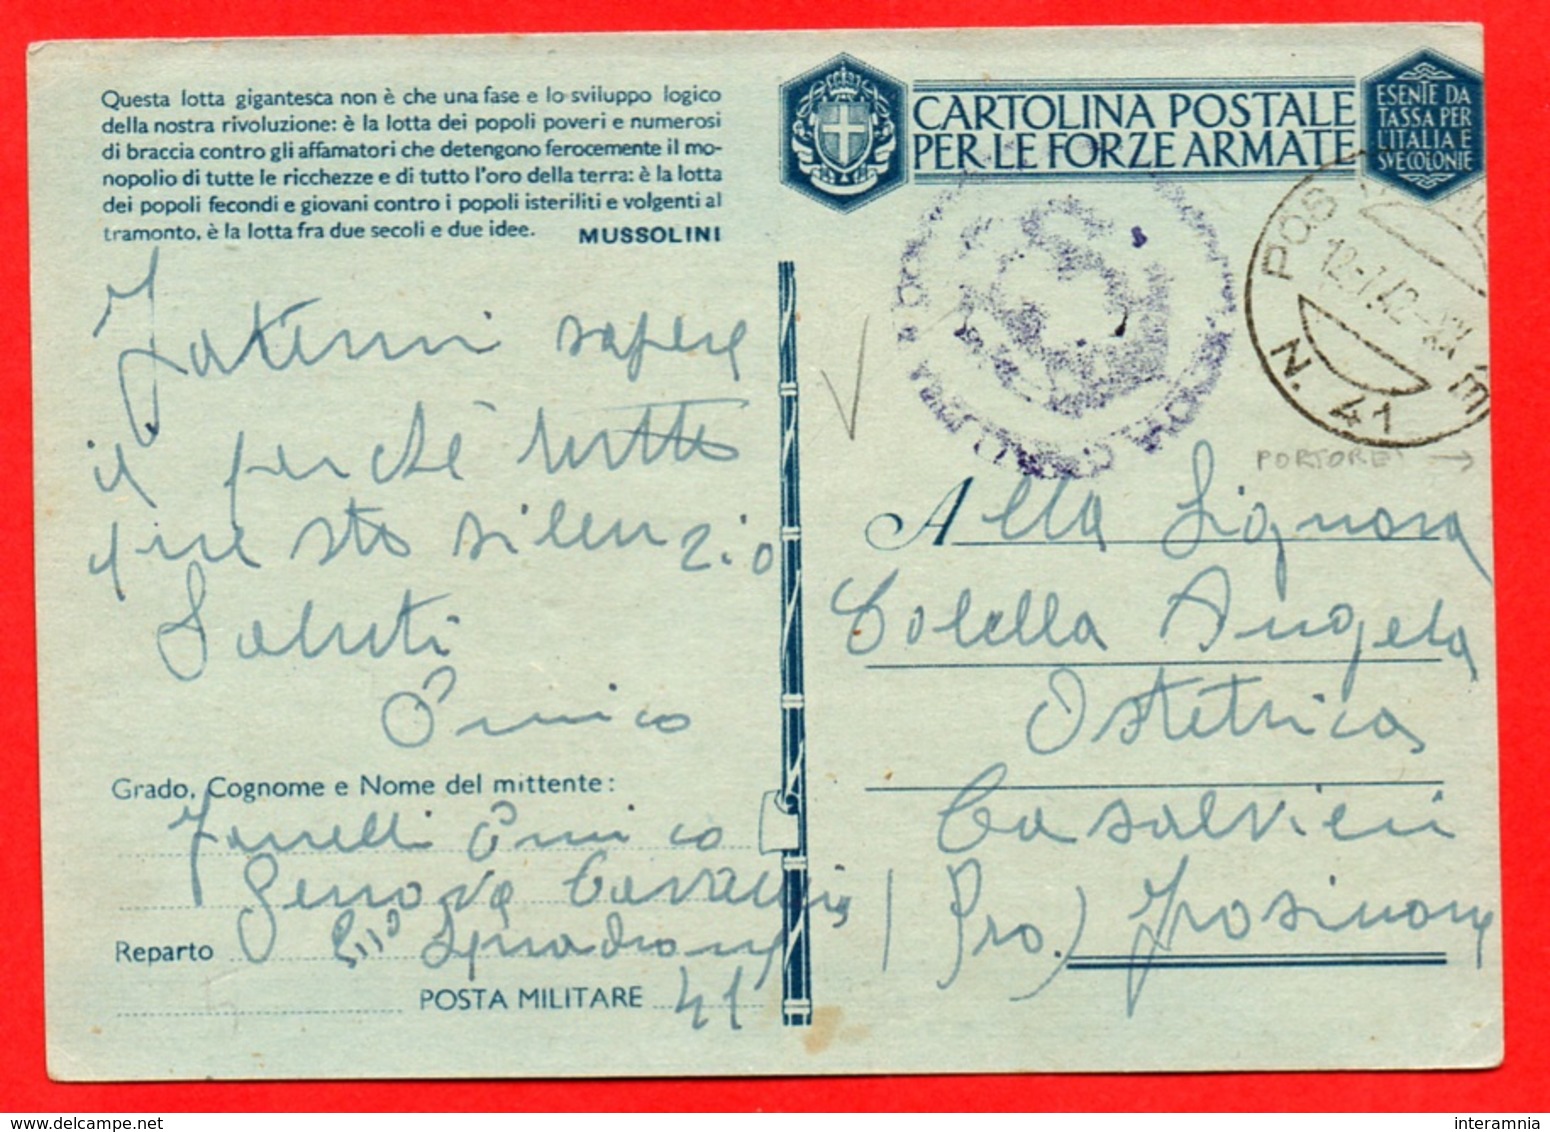 Questa lotta gigantesca non è che una fase e lo sviluppo logico
della nostra rivoluzione: è la lotta dei popoli poveri e numerosi
di braccia contro gli affamatori che detengono ferocemente il mo-
nopolio di tutte le ricchezze e di tutto l'oro della terra: è la lotta
dei popoli fecondi e giovani contro i popoli isteriliti e volgenti al
tramonto, è la lotta fra due secoli e due idee. MUSSOLINI
CARTOLINA POSTALE
PER LE FORZE ARMATE
ESENTE DA
TASSA PER
L'ITALIA E
SVE COLONIE
12-7.42-XX
N. 41
PORTORE
Fatemi sapere
il perchè tutto
questo silenzio
Saluti
Enrico
Grado, Cognome e Nome del mittente:
Enrico
Genova Cavalleria
Reparto Squadrone
POSTA MILITARE 41
Alla Signora
Colella Angela
Ostetrica
Casalvieri
(Pro.) Frosinone
interamnia